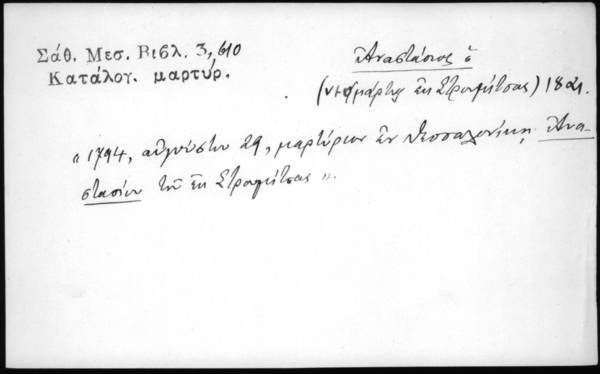 Σάθ. Μεσ. Βιβλ. 3, 610
Κατάλογ. μαρτύρ.
Ἀναστάσιος ὁ
(νεομάρτυς ἐκ Στρωμνίτσας) 1821.
"1794, αὐγούστου 29, μαρτύριον ἐν Θεσσαλονίκῃ Ἀνα-
στασίου τοῦ ἐκ Στρωμνίτσας".